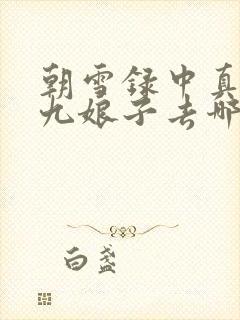 朝雪录中真
九娘子去哪
白盏